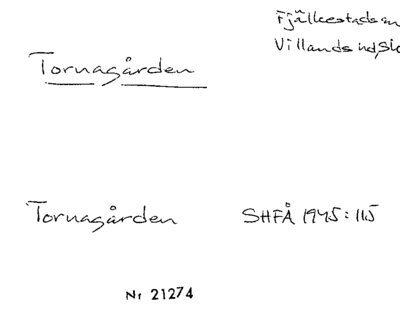 Fjälkestads
Villands hd,
Tornagården
Tornagården SHFÅ 1945:115
Nr 21274